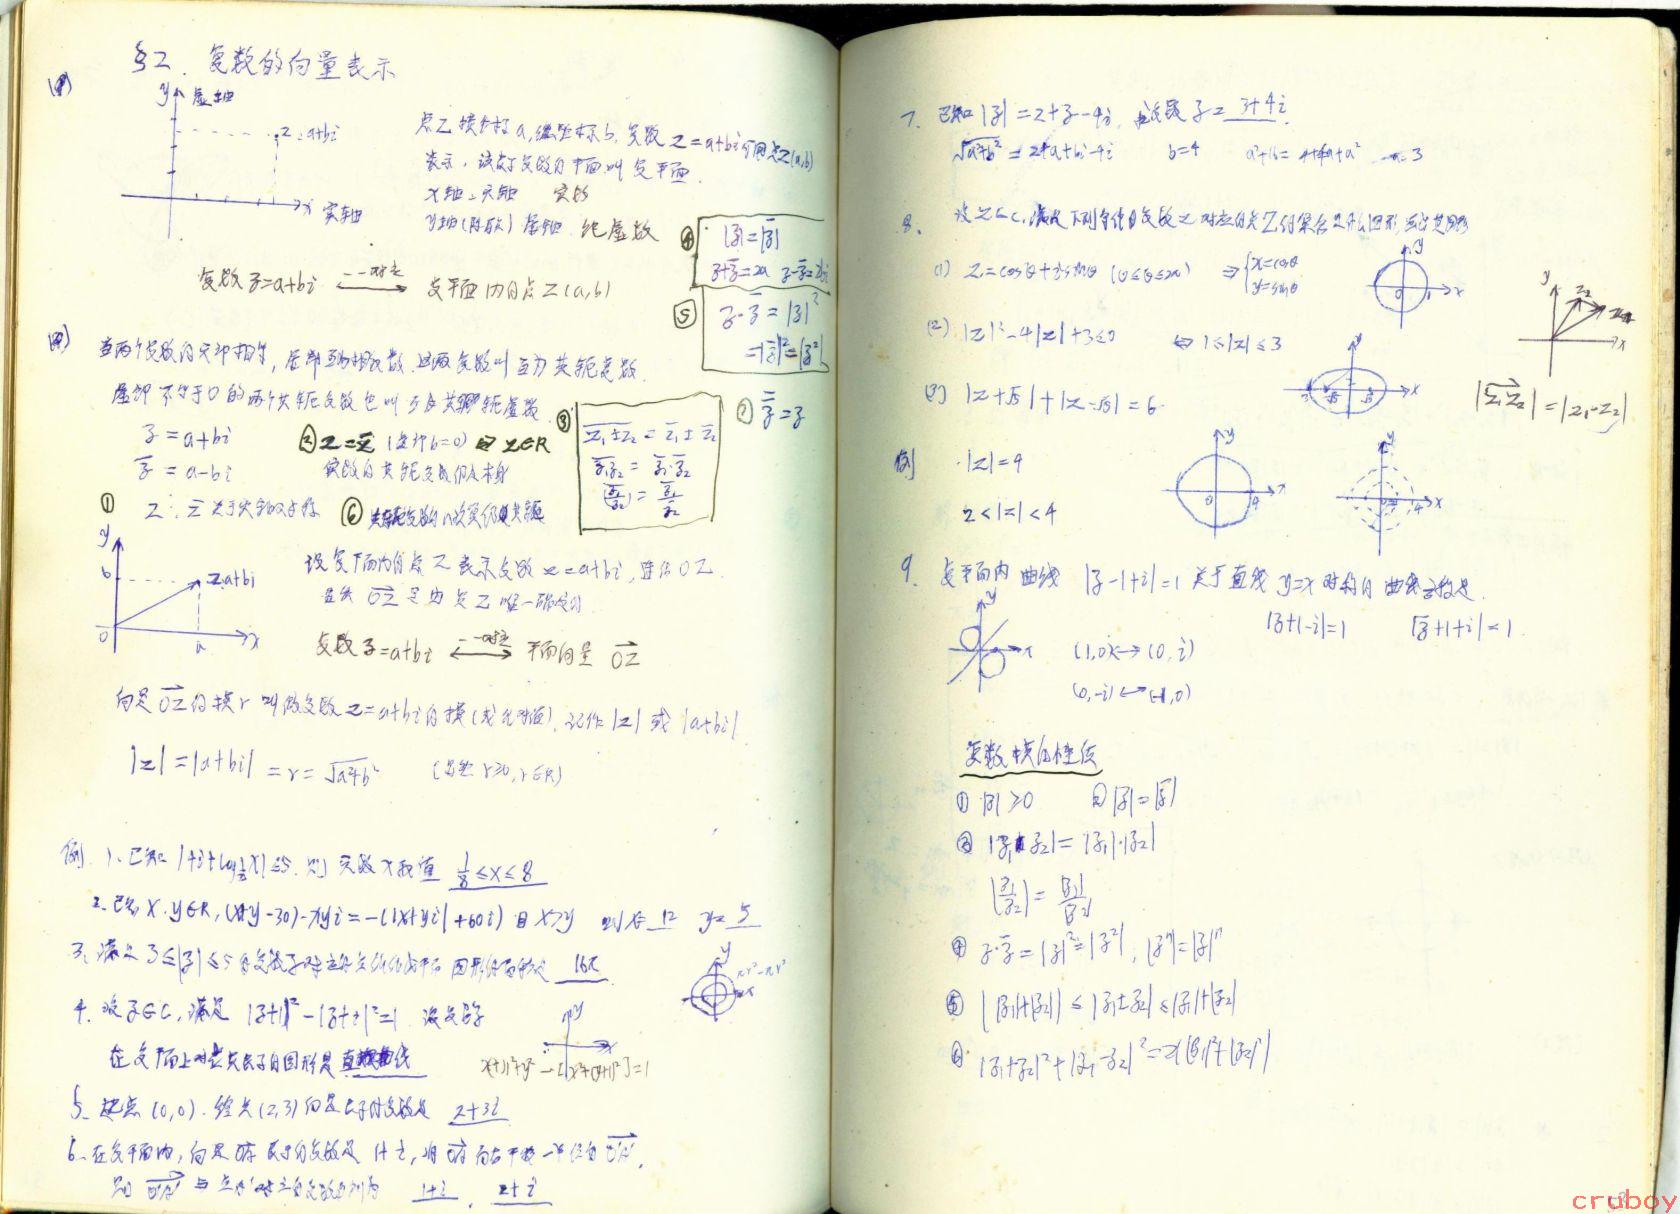 §2. 复数的向量表示
y 虚轴
z: a+bi
x 实轴
点Z横坐标a,纵坐标b,复数z=a+bi可用点Z(a,b)
表示,该表示复数的平面叫复平面.
x轴:实轴 实数
y轴(除原点) 虚轴 纯虚数
复数z=a+bi ⟷ 复平面内的点Z(a,b)
④ |z|=|z̄|
z+z̄=2a z-z̄=2bi
⑤ z·z̄=|z|²
=|z̄|²=|z²|
当两个复数的实部相等,虚部互为相反数,这两复数叫互为共轭复数.
虚部不等于0的两个共轭复数也叫互为共轭虚数
z=a+bi
z̄=a-bi
② z=z̄ (虚部b=0) ⇔ z∈R
实数的共轭复数仍是本身
① z, z̄关于实轴对称
⑥ 共轭复数的n次幂仍是共轭
③ z̄₁±z₂ = z̄₁±z̄₂
z₁z₂ = z̄₁·z̄₂
(z₁/z₂) = z̄₁/z̄₂
⑦ z̿=z
y b z: a+bi
0 a x
设复平面内的点Z表示复数z=a+bi,连结OZ.
显然 OZ 是由点Z唯一确定的
复数z=a+bi ⟷ 平面向量 OZ
向量OZ的模r叫做复数z=a+bi的模(或绝对值),记作|z|或|a+bi|
|z|=|a+bi|=r=√a²+b² (显然 r≥0, r∈R)
例 1.已知 |4+i+log½x|≤5. 则 实数x取值 1/8≤x≤8
2.已知 x.y∈R, (x+y-30)-xyi=-(|x+yi|+60i) 且 x>y 则x=12 y=5
3.满足3≤|z|≤5的复数z对应的点组成平面图形的面积是 16π
πr²-πr²
4.设z∈C,满足 |z+1|²-|z+i|²=1 该复数
在复平面上对应点表示的图形是直线
(x+1)²+y²-[x²+(y+1)²]=1
5.起点(0,0).终点(2,3)向量表示的复数是 2+3i
6.在复平面内,向量OA表示的复数是1+i,将OA向右平移一个单位得O'A',
则 O'A' 与点A'对应的复数分别为 1+i, 2+i
7. 已知|z|=2+z-4i, 则复数z=3+4i
√a²+b²=2+a+bi-4i b=4 a²+16=4+4a+a² a=3
8. 设z∈C,满足下列条件的复数z对应的点Z的集合是什么图形,画出其图形
(1) z=cosθ+isinθ (0≤θ≤2π) ⇒ {x=cosθ y=sinθ
(2) |z|²-4|z|+3≤0 ⇔ 1≤|z|≤3
(3) |z+√5|+|z-√5|=6
|Z₁Z₂|=|z₁-z₂|
例 |z|=4
2<|z|<4
9. 复平面内 曲线 |z-1+i|=1 关于直线 y=x 对称的曲线方程是
|z+1-i|=1 |z̄+1+i|=1
(1,0)⟷(0,i)
(0,-i)⟷(-1,0)
复数模的性质
① |z|≥0 且|z|=|z̄|
② |z₁·z₂|=|z₁|·|z₂|
|z₁/z₂|=|z₁|/|z₂|
④ z·z̄=|z|²=|z²|, |zⁿ|=|z|ⁿ
⑤ ||z₁|+|z₂||≤|z₁±z₂|≤|z₁|+|z₂|
⑥ |z₁+z₂|²+|z₁-z₂|²=2(|z₁|²+|z₂|²)
cruboy